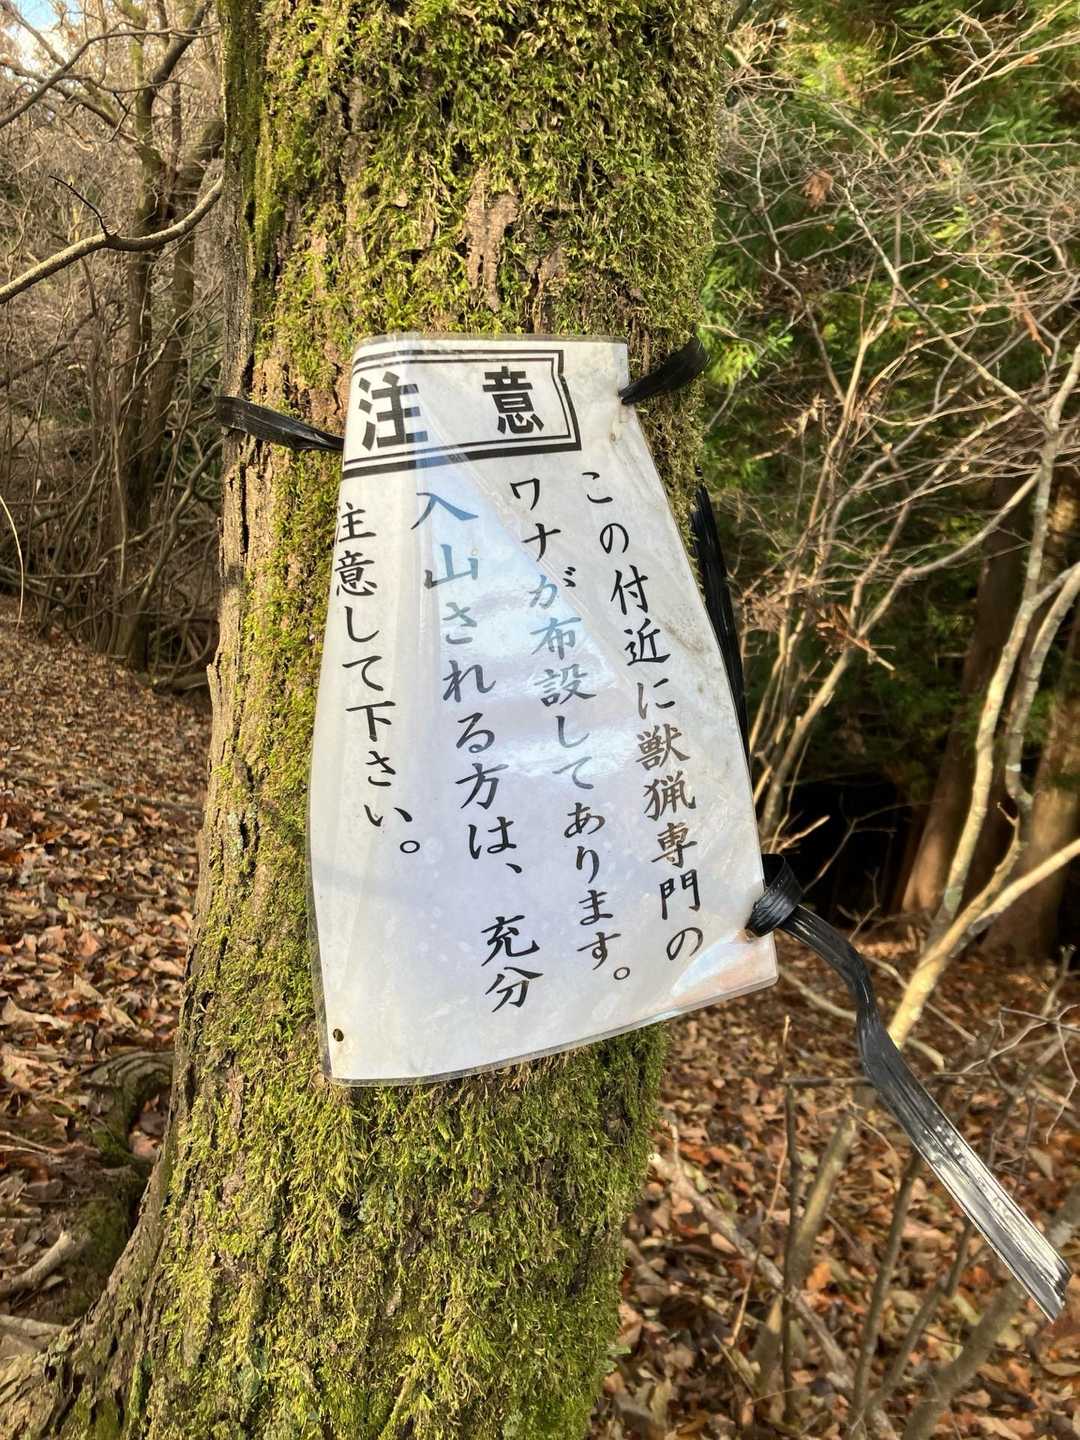 注意
この付近に獣猟専門の
ワナが布設してあります。
入山される方は、充分
注意して下さい。